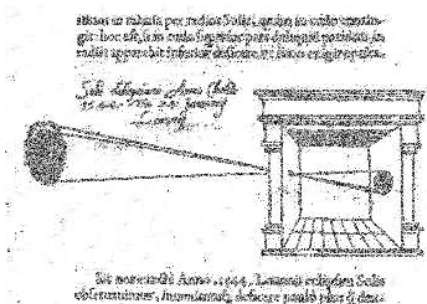 in tabula per radios Solis, quam in cœlo contin-
git: hoc est, si in cœlo superior pars deliquiũ patiatur, in
radiis apparebit inferior deficere, ut ratio exigit optica.
Solis deliquium Anno Christi
1544. Die 24. Januarij
Louanij
Sic nos Anno .1544. Louanii eclipsim Solis
obseruauimus, inuenimusq; deficere paulò plus q̃